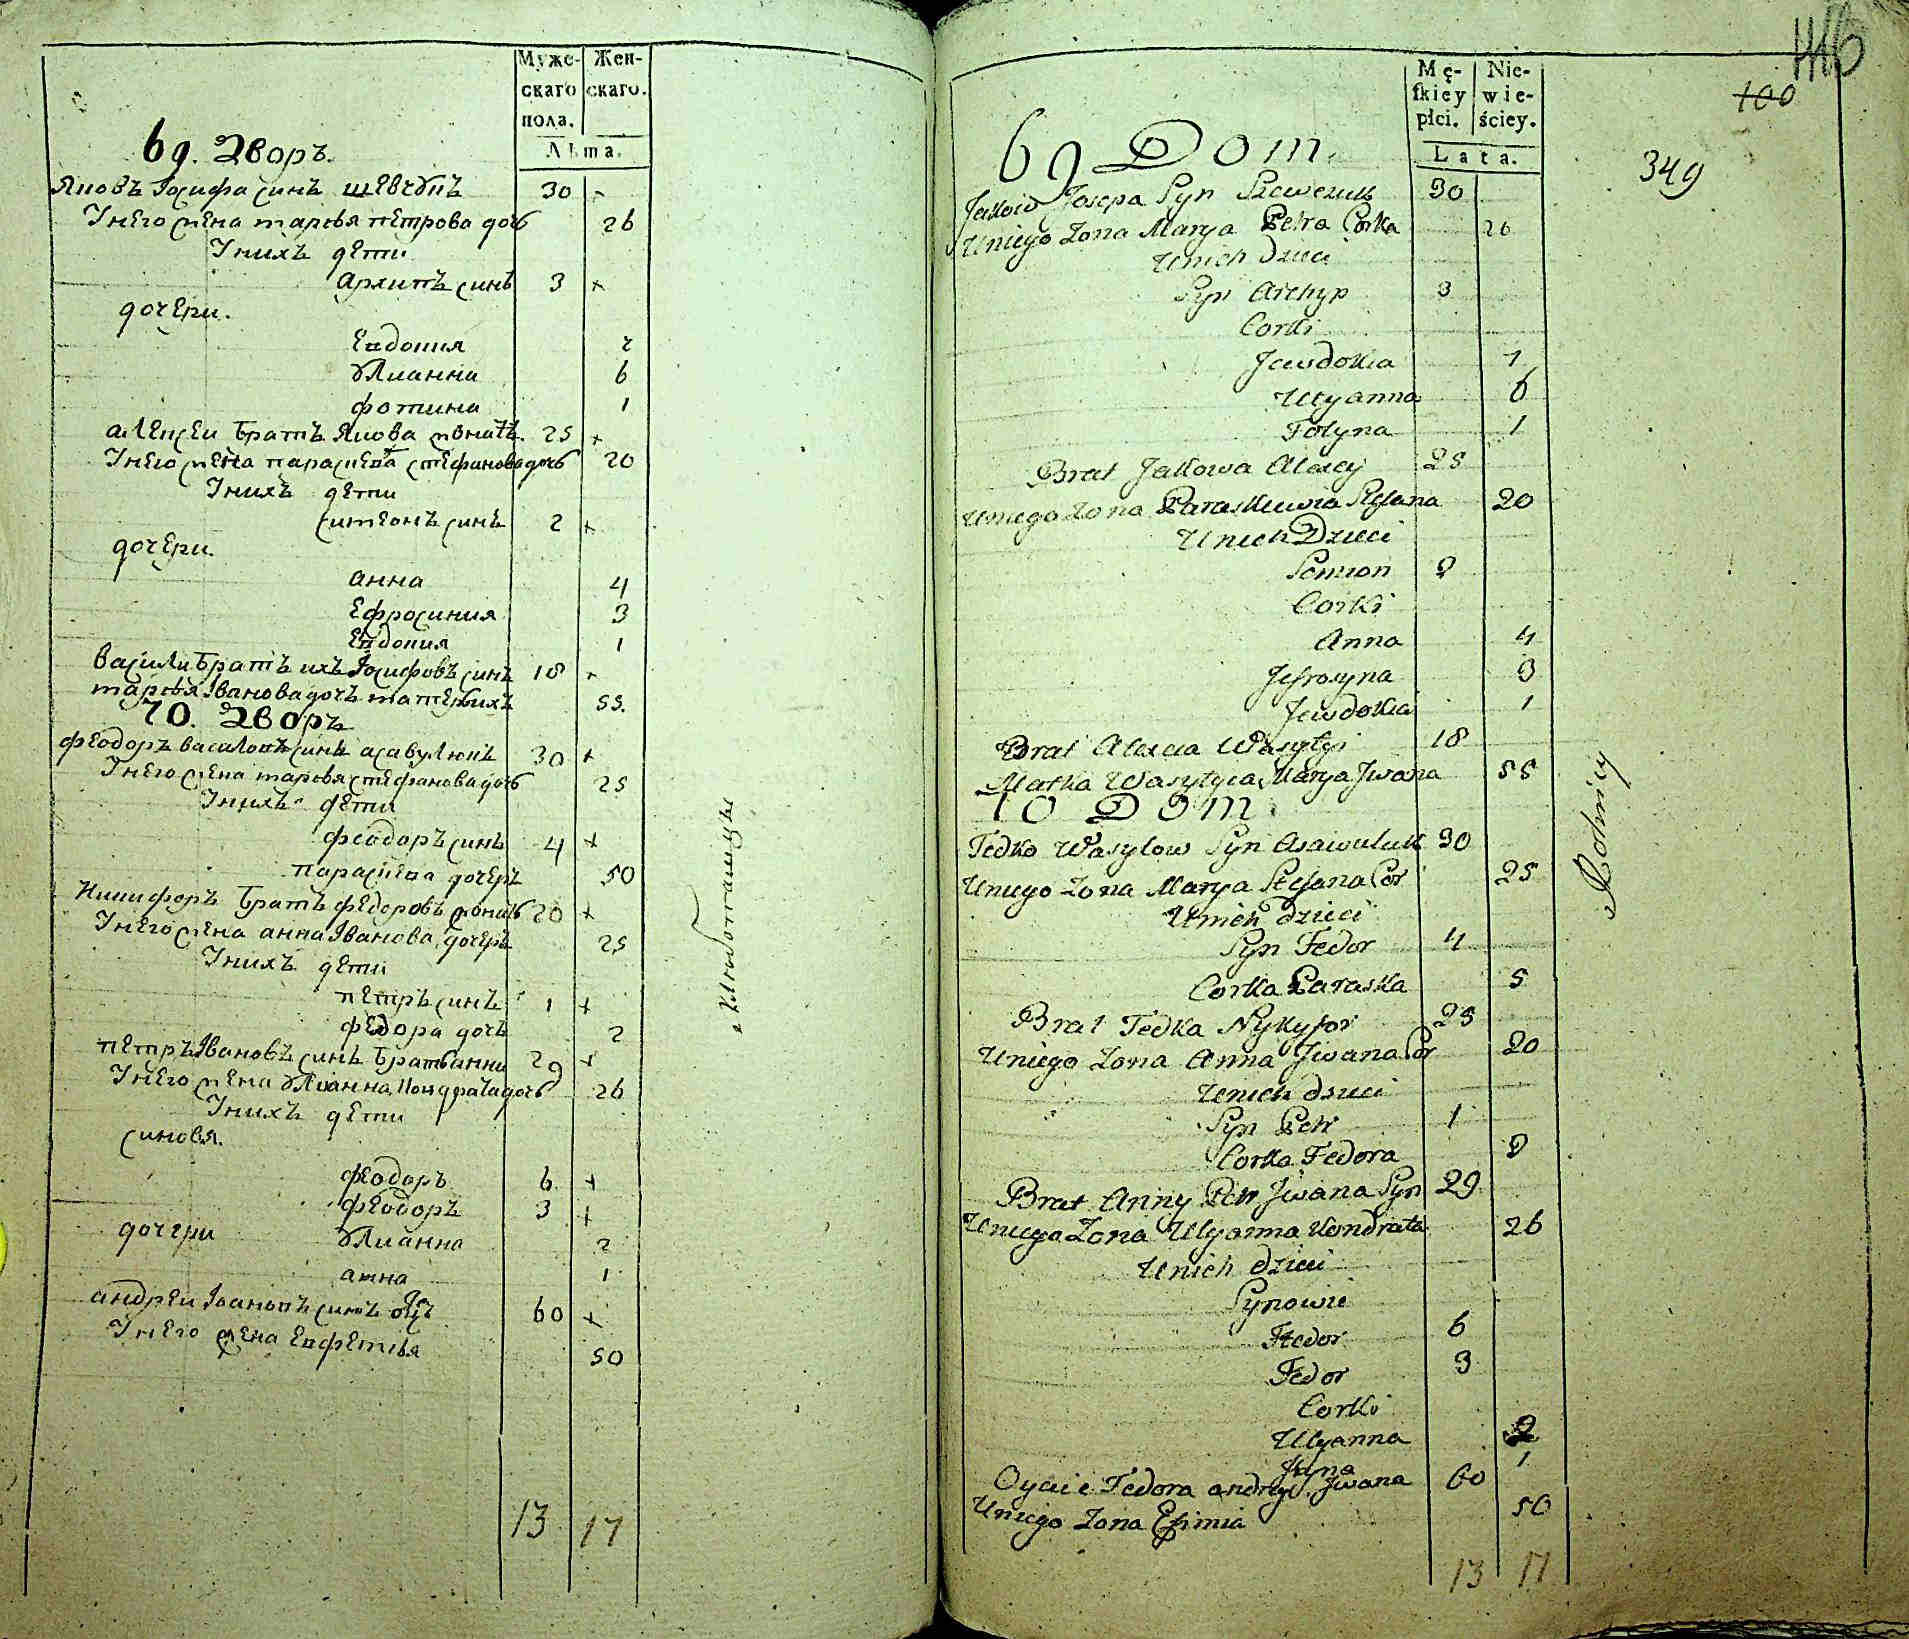 Муже-
скаго
пола.
Жен-
скаго.
Лѣта.
69. Дворъ.
Яковъ Іосифа синъ шевчукъ 30
Унего жена марья петрова дочь 26
Унихъ дети
архипъ синъ 3
дочери.
Евдокия 7
Улианна 6
фотина 1
алексеи братъ Якова женатъ. 25
Унего жена параскева стефанова дочь 20
Унихъ дети
симеонъ синъ 2
дочери.
анна 4
Ефросиния 3
Евдокия 1
василь братъ ихъ Іосифовъ синъ 18
марья Іванова дочь матерь ихъ 55.
70. Дворъ
феодоръ василовъ синъ асавулюкъ 30
Унего жена марья стефанова дочь 25
Унихъ дети
феодоръ синъ 4
параскева дочерь 50
Никифоръ братъ федоровъ женатъ 20
Унего жена анна Іванова дочерь 25
Унихъ дети
петръ синъ 1
федора дочь 2
петръ Івановъ синъ братъ анни 29
Унего жена Улианна Кондрата дочь 26
Унихъ дети
синовя.
феодоръ 6
феодоръ 3
дочери Улианна 2
анна 1
андреи Івановъ синъ оцъ 60
Унего жена Евфемия 50
13 17
Mę-
ſkiey
płci.
Nie-
wie-
ściey.
Lata.
116
100
349
69 Dom.
Jakow Josepa Syn Szewczuk 30
Uniego Zona Marya Petra Corka 26
Unich Dzieci
Syn Archyp 3
Corki
Jewdokia 7
Ulyanna 6
Fotyna 1
Brat Jakowa Alexey 25
Uniego Zona Paraskiewia Stefana 20
Unich Dzieci
Semion 2
Corki
Anna 4
Jefrosyna 3
Jewdokia 1
Brat Alexeia Wasylyi 18
Matka Wasylyia Marya Jwana 55
70 Dom
Fedko Wasylow Syn Asawuluk 30
Uniego Zona Marya Stefana Cor 25
Unich dzieci
Syn Fedor 4
Corka Paraska 5
Brat Fedka Nykyfor 25
Uniego Zona Anna Jwana Cor 20
Unich dzieci
Syn Petr 1
Corka Fedora 2
Brat Anny Petr Jwana Syn 29
Uniego Zona Ulyanna Kondrata 26
Unich dzieci
Synowie
Fedor 6
Fedor 3
Corki
Ulyanna 2
Anna 1
Oyciec Fedora andrey Jwana 60
Uniego Zona Efimia 50
Rolnicy
13 17